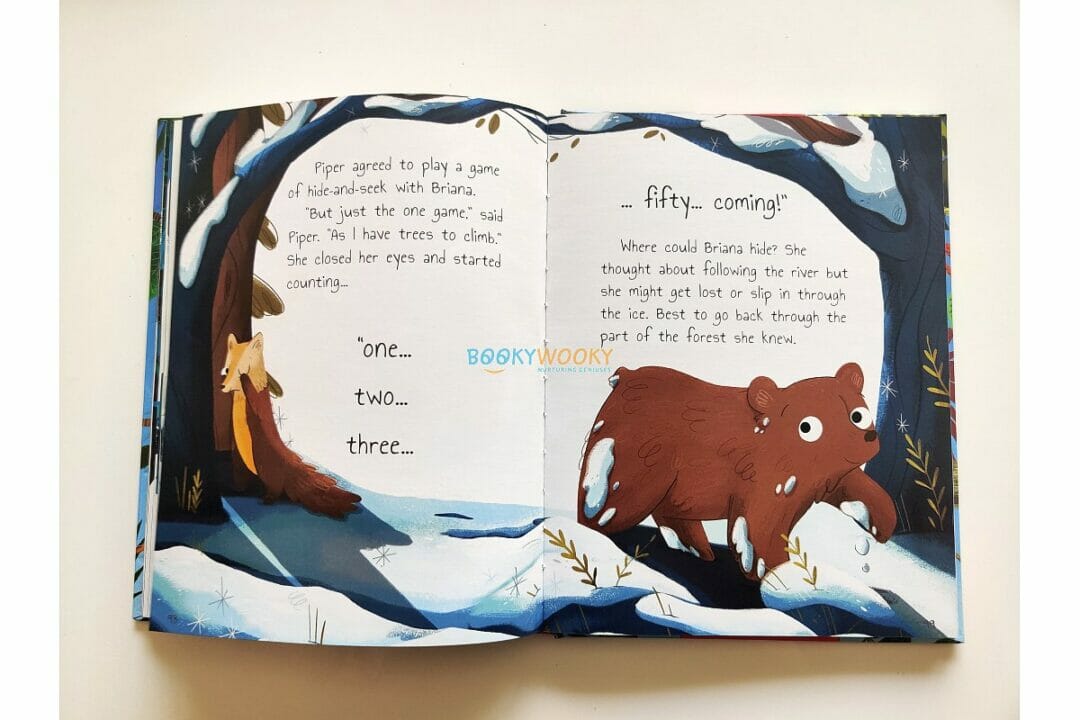 Piper agreed to play a game
of hide-and-seek with Briana.
"But just the one game," said
Piper. "As I have trees to climb."
She closed her eyes and started
counting...
"one...
two...
three...
... fifty... coming!"
Where could Briana hide? She
thought about following the river but
she might get lost or slip in through
the ice. Best to go back through the
part of the forest she knew.
BOOKYWOOKY
NURTURING GENIUSES